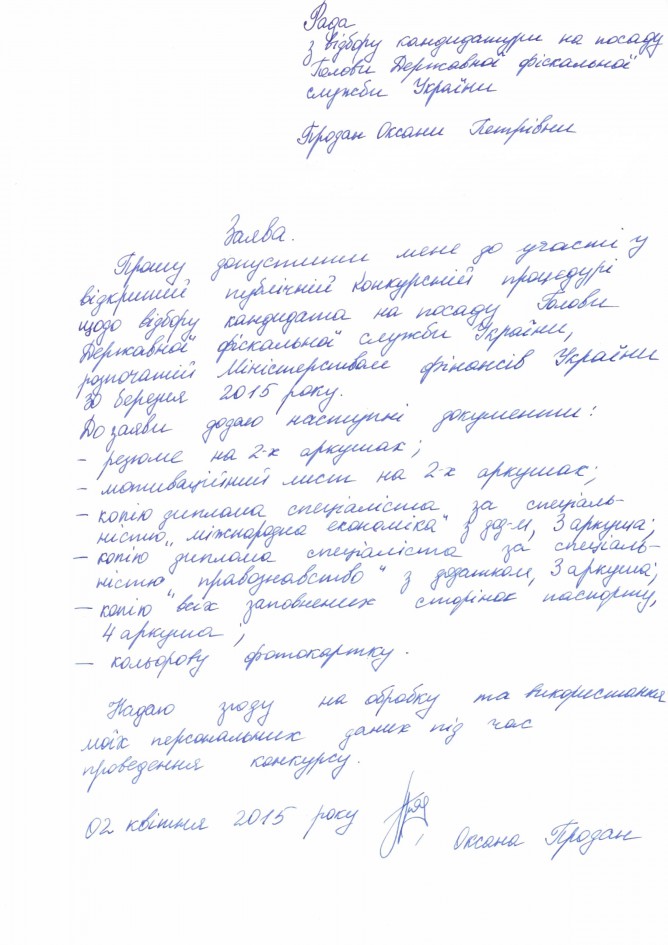 Рада
з відбору кандидатури на посаду
Голови Державної фіскальної
служби України
Продан Оксани Петрівни
Заява.
Прошу допустити мене до участі у
відкритій публічній конкурсній процедурі
щодо відбору кандидата на посаду Голови
Державної фіскальної служби України,
розпочатій Міністерством фінансів України
30 березня 2015 року.
До заяви додаю наступні документи:
– резюме на 2-х аркушах;
– мотиваційний лист на 2-х аркушах;
– копію диплома спеціаліста за спеціаль-
ністю „міжнародна економіка“ з дод-м, 3 аркуша;
– копію диплома спеціаліста за спеціаль-
ністю „правознавство“ з додатком, 3 аркуша;
– копію всіх заповнених сторінок паспорту,
4 аркуша;
– кольорову фотокартку.
Надаю згоду на обробку та використання
моїх персональних даних під час
проведення конкурсу.
02 квітня 2015 року
Оксана Продан